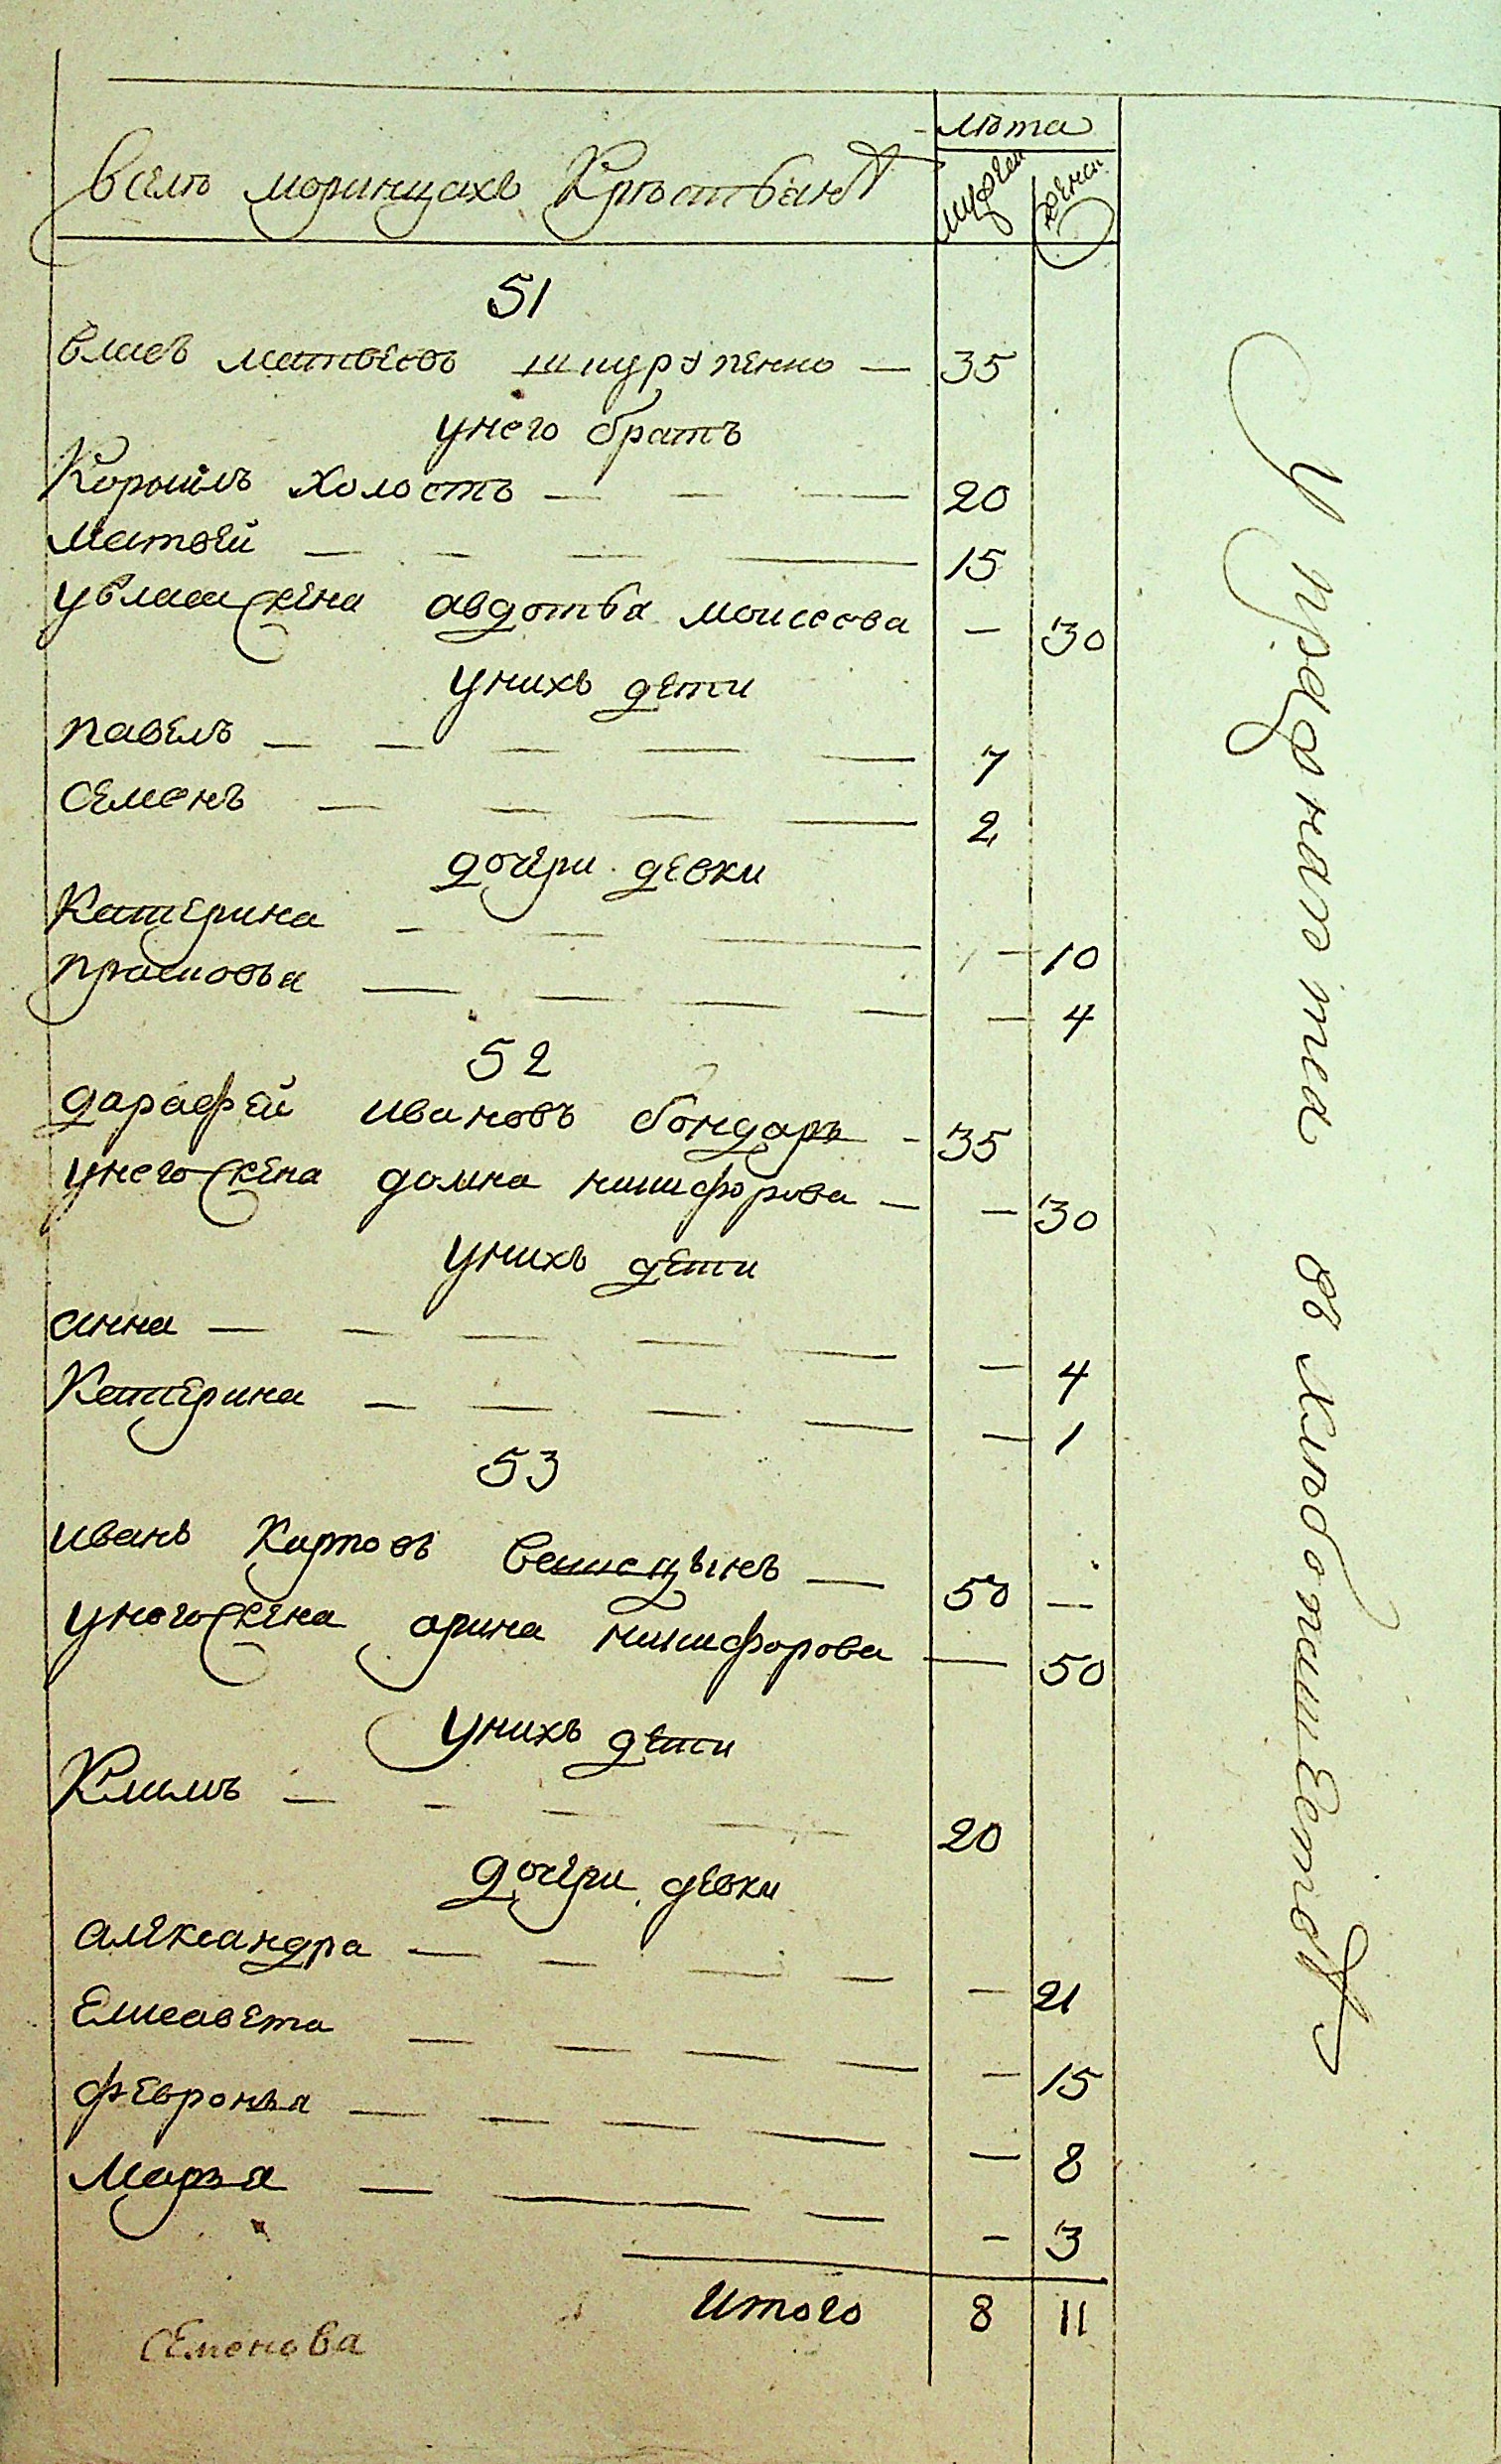 лѣта
вселѣ моринцахъ Крѣстьянъ
мужей
жена
51
власъ матвеевъ шпурупенко — 35
унего братъ
Корнилъ холостъ — — — 20
матвей — — — — 15
увласа жена авдотья моисеева — 30
унихъ дети
павелъ — — — — — 7
семенъ — — — — 2
дочери девки
Катерина — — — — 10
прасковья — — — — — 4
52
дарафей ивановъ бондаръ — 35
унего жена домна никифорова — — 30
унихъ дети
анна — — — — — — 4
Катерина — — — — — 1
53
иванъ Карповъ — 50 —
унего жена орина никифорова — 50
унихъ дети
Климъ — — — — 20
дочери девки
александра — — — — — 21
Елисавета — — — — — 15
февронья — — — — — 8
Марья — — — — 3
Итого 8 11
Семенова
Упражняютса въ хлѣбопашествѣ